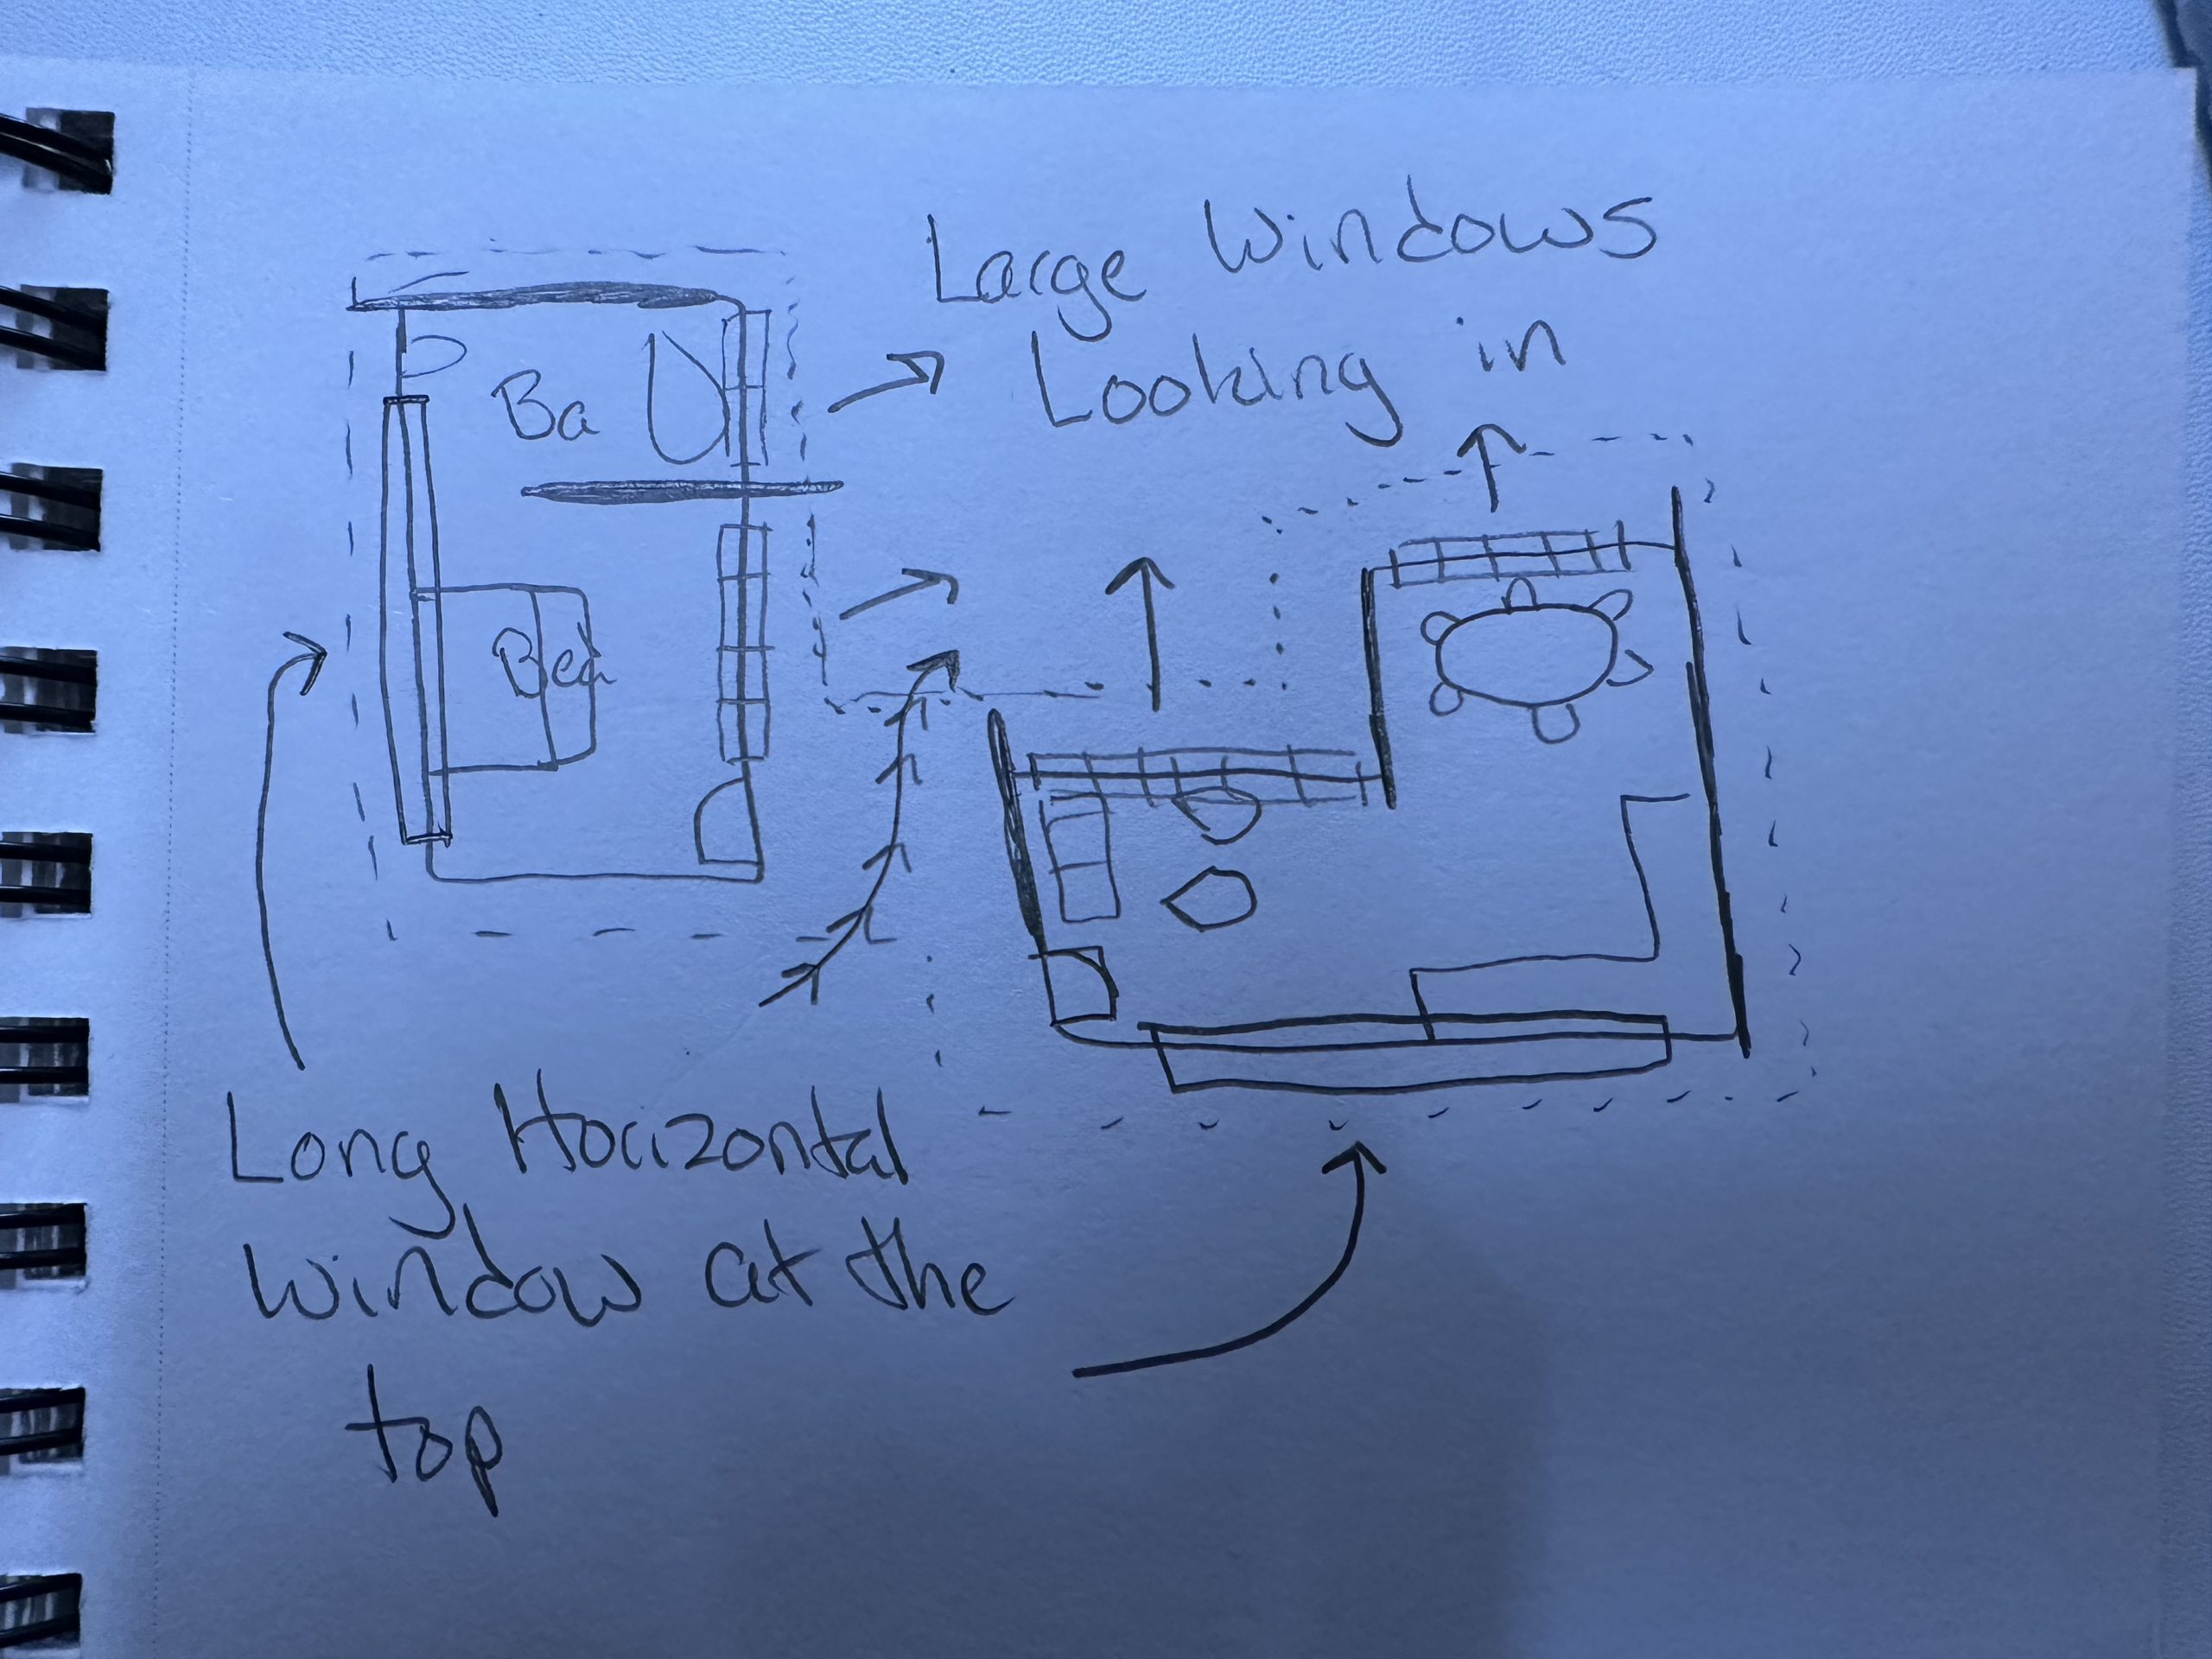 Large Windows
Looking in
Ba
Bed
Long Horizontal
Window at the
top